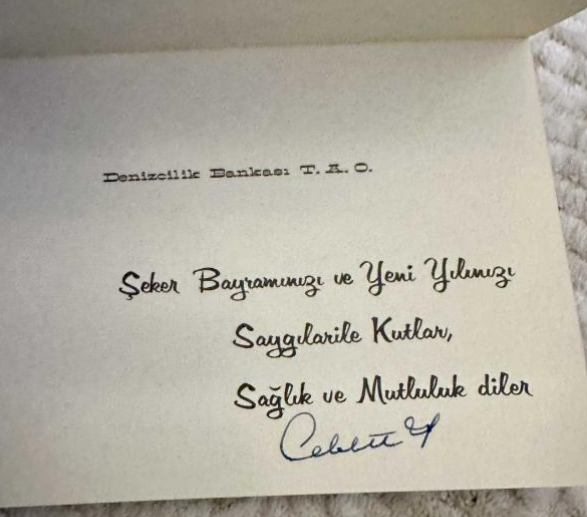 Denizcilik Bankası T. A. O.
Şeker Bayramınızı ve Yeni Yılınızı
Saygılarile Kutlar,
Sağlık ve Mutluluk diler